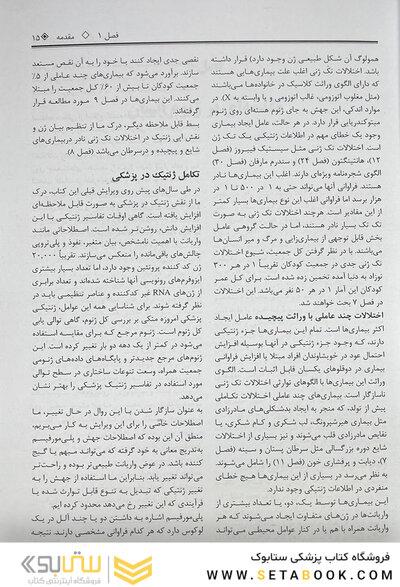 فصل ۱ ◇ مقدمه ◈ ۱۵
همولوگ آن شکل طبیعی ژن وجود دارد) قرار داشته
باشد. اختلالات تک ژنی اغلب علت بیماری‌هایی هستند
که دارای الگوی وراثت کلاسیک در خانواده‌ها می‌باشند
(مثل مغلوب اتوزومی، غالب اتوزومی و یا وابسته به X). در
موارد اندکی، این جهش به جای ژنوم هسته‌ای روی ژنوم
میتوکندریایی قرار دارد. در هر حالت، عامل ایجاد بیماری
وجود یک خطای مهم در اطلاعات ژنتیکی یک تک ژن
است. اختلالات تک ژنی مثل سیستیک فیبروز (فصل
۱۲)، هانتینگتون (فصل ۲۴) و سندرم مارفان (فصل ۳۰)
الگوی شجره‌نامه ویژه‌ای دارند. اغلب این بیماری‌ها نادر
هستند. فراوانی آنها می‌تواند حتی به ۱ در ۵۰۰ تا ۱ در
هزار برسد اما فراوانی اغلب این نوع بیماری‌ها بسیار کمتر
از این مقادیر است. هرچند اختلالات تک ژنی به صورت
تک تک بسیار نادر هستند، اما در حالت گروهی عامل
بخش قابل توجهی از بیماری‌زایی و مرگ و میر انسان‌ها
می‌باشند. با در نظر گرفتن کل جمعیت، شیوع اختلالات
تک ژنی جدی در جمعیت کودکان تقریباً ۱ در هر ۳۰۰
نوزاد به دنیا آمده تخمین زده شده است. برای کل عمر
کودکان این آمار ۱ در هر ۵۰ نفر می‌باشد. این اختلالات
در فصل ۷ بحث خواهند شد.
اختلالات چند عاملی با وراثت پیچیده عامل ایجاد
اکثر بیماری‌ها است. تمام این بیماری‌ها جزء ژنتیکی
دارند، که وجود جزء ژنتیکی در آنها بوسیله افزایش
احتمال عود در خویشاوندان افراد مبتلا یا افزایش فراوانی
بیماری در دوقلوهای یکسان قابل اثبات است. الگوی
وراثت این بیماری‌ها با الگوهای توارثی اختلالات تک ژنی
ناسازگار است. بیماری‌های چند عاملی اختلالات تکاملی
پیش از تولد، که منجر به ایجاد بدشکلی‌های مادرزادی
مثل بیماری هیرشپرونگ، لب شکری و کام شکری، یا
نقایص مادرزادی قلب می‌شوند و نیز بسیاری از اختلالات
شایع دوره بزرگسالی مثل سرطان پستان و سینه (فصل
۷)، دیابت و پرفشاری خون (فصل ۱۱) را شامل می‌شوند.
به نظر می‌رسد در بسیاری از این بیماری‌ها هیچ خطای
منفردی در اطلاعات ژنتیکی وجود ندارد.
این بیماری‌ها توسط یک، دو، یا تعداد بیشتری از
واریانت‌ها در ژن‌های متفاوت ایجاد می‌شوند که هر
واریانت همراه با هم یا در کنار عوامل محیطی می‌تواند
نقصی جدی ایجاد کنند یا خود را به آن نقص مستعد
سازند. برآورد می‌شود که بیماری‌های چند عاملی از ۵٪
جمعیت کودکان تا بیش از ۶۰٪ کل جمعیت را مبتلا
می‌کنند. این بیماری‌ها در فصل ۹ مورد مطالعه قرار
گرفته‌اند.
بسط قابل ملاحظه دیگر، درک ما از تنظیم بیان ژن و
نقش اپی ژنتیک در اختلالات تک ژنی نادر دربیماری‌های
شایع و پیچیده و درسرطان می‌باشد (فصل ۸).
تکامل ژنتیک در پزشکی
در طی سال‌های پیش روی ویرایش قبلی این کتاب، درک
ما از نقش ژنتیک در پزشکی به صورت قابل ملاحظه‌ای
افزایش یافته است. گاهی اوقات تفاسیر ژنتیکی با این
افزایش دانش، روشن‌تر شده است. اصطلاحاتی مانند
واریانت با اهمیت نامشخص، بیان متغیر، نفوذ و پلی‌تروپی
چالش‌های باقی‌مانده را منعکس می‌سازند. تقریباً ۲۰,۰۰۰
ژن کد کننده پروتئین وجود دارد، اما تعداد بسیار بیشتری
ایزوفرم‌های رونویسی آنها شناخته شده‌اند و تعداد برابری
از ژن‌های RNA غیر کدکننده و عناصر تنظیمی باید در
نظر گرفته شوند. برای شناسایی همه این عوامل، ژنتیک
پزشکی امروزه متکی بر بررسی کل ژنوم، گاهی توالی یابی
کل ژنوم است. ژنوم مرجع که برای مقایسه استفاده
می‌شود در کمتر از یک دهه دو بار تغییر کرده است. این
ژنوم‌های مرجع جدیدتر و پایگاه‌های داده‌های ژنومی
جمعیت همراه، وسعت تنوعات ساختاری در سطح توالی
مورد استفاده در تفاسیر ژنتیک پزشکی را بهتر نشان
می‌دهد.
به عنوان سازگار شدن با این روال در حال تغییر، ما
اصطلاحات خاصّی را برای این ویرایش به کار می‌بریم.
منطق آن این بوده که اصطلاحات جهش و پلی‌مورفیسم
به‌تدریج معانی به خود گرفته که می‌تواند مبهم یا گیج
کننده باشد. در عوض واریانت طبیعی‌تر بوده و راحت‌تر
می‌تواند تغییر یابد. بنابراین ما استفاده از جهش را به
تغییر ژنتیکی که تبدیل به تنوع قابل توارث شده یا
فرآیندی که این تغییر رخ می‌دهد محدود کرده ایم.
پلی‌مورفیسم اشاره به داشتن دو یا چند آلل در یک
لوکوس دارد که هر کدام فراوانی مشخصی دارند. نتیجه
فروشگاه کتاب پزشکی ستابوک
WWW.SETABOOK.COM
ستابوک
فروشگاه اینترنتی کتاب